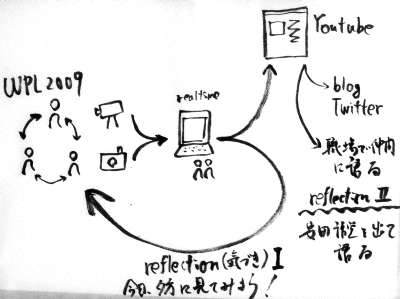 Youtube
WPL2009
realtime
blog
Twitter
職場で仲間
に語る
reflection II
安田講堂を出て
語る
reflection (気づき) I
今日、夕方に見てみよう!